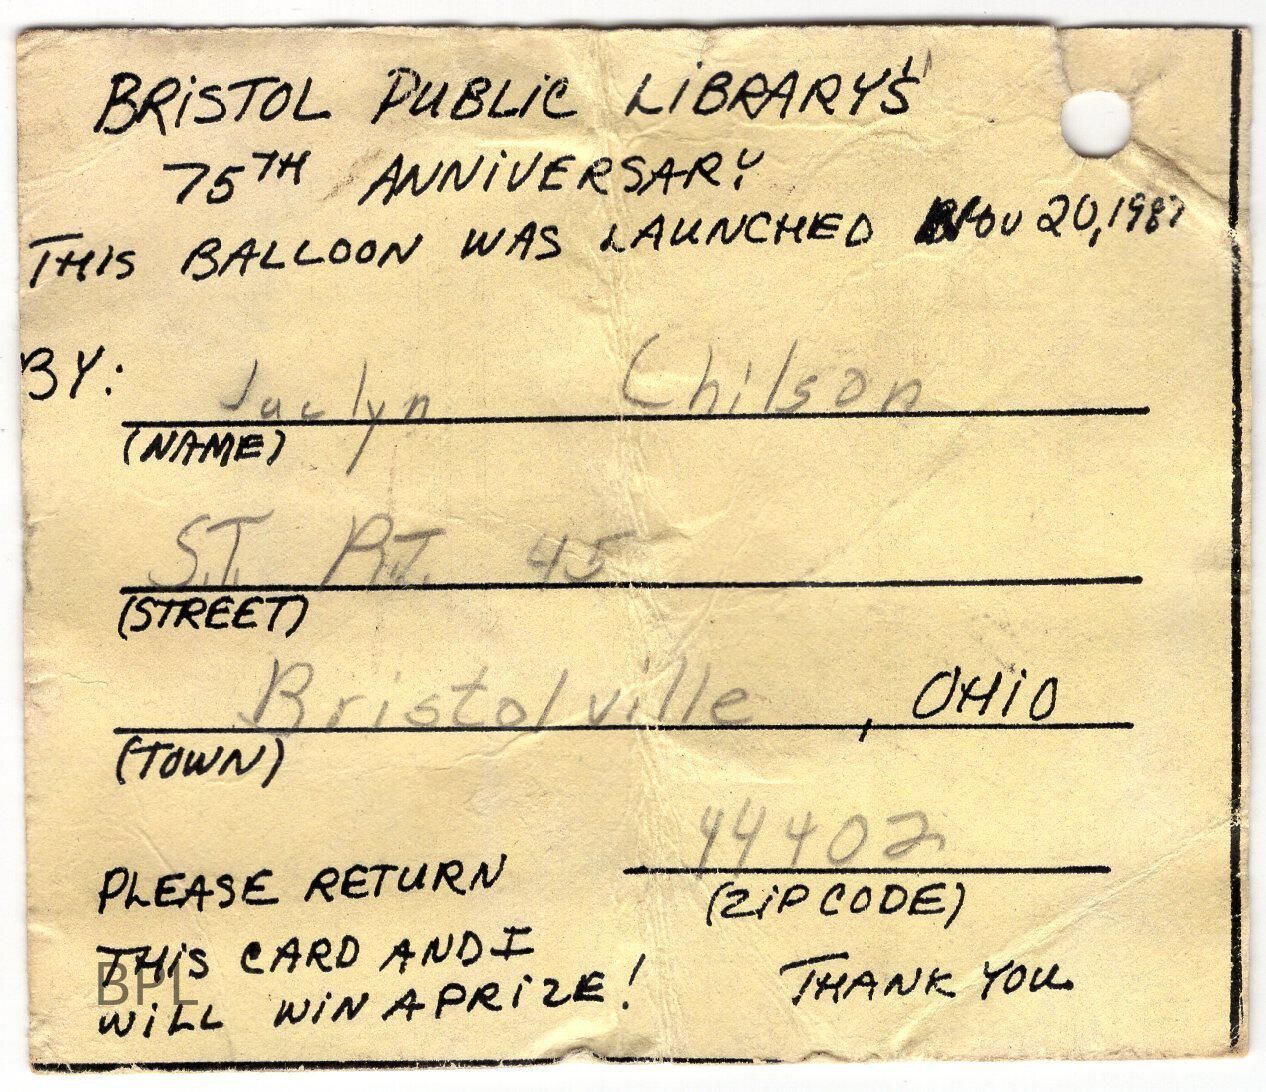 BRiSTOL PUBLiC LiBRARY'S
75TH ANNiVERSARY
THiS BALLOON WAS LAUNCHED NOV 20, 1987
BY: Jaclyn Chilson
(NAME)
S.T. R.T. 45
(STREET)
Bristolville, OHiO
(TOWN)
44402
(ZiP CODE)
PLEASE RETURN
THiS CARD AND I
WiLL WiN A PRiZE!
THANK YOU
BPL